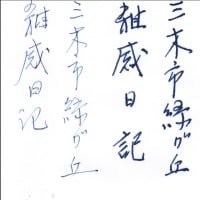 三木市緑が丘
雑感日記
三木市緑が丘
雑感日記